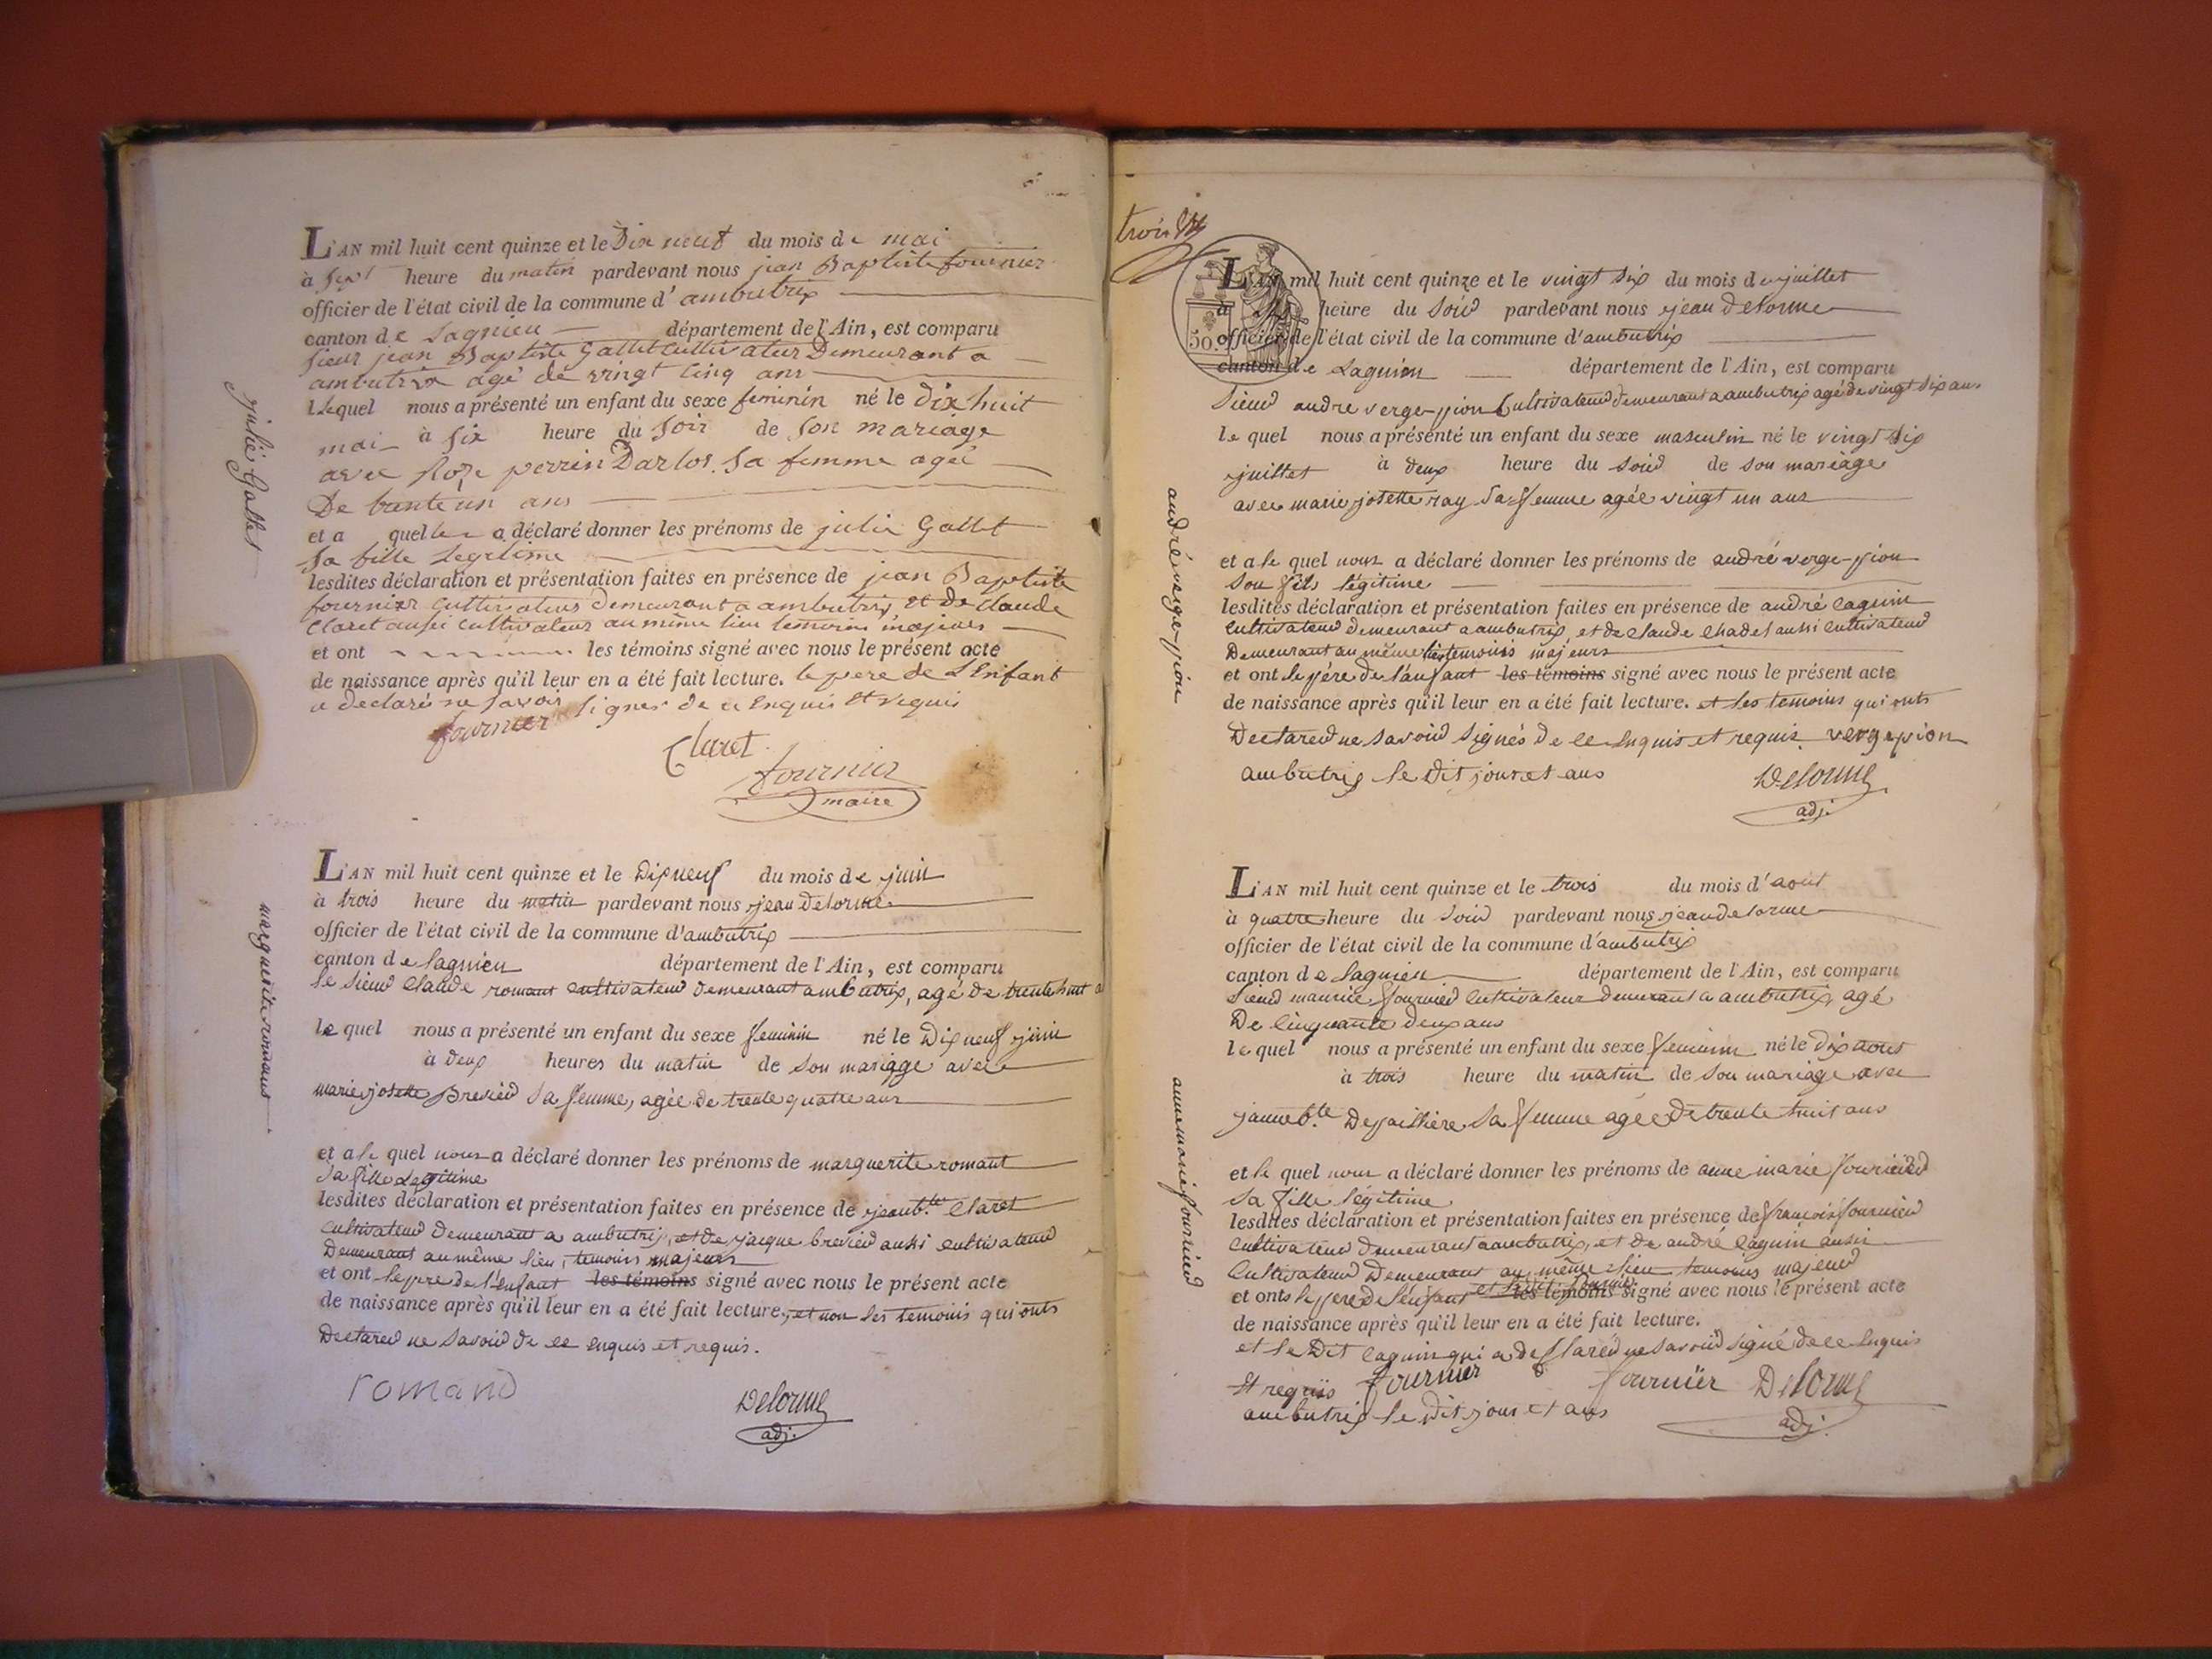 L'AN mil huit cent quinze et le Dix neuf du mois de mai
à sept heure du matin pardevant nous jean Baptiste fournier
officier de l'état civil de la commune d'ambutrix
canton de Lagnieu département de l'Ain, est comparu
sieur jean Baptiste Gallet Cultivateur Demeurant a
ambutrix agé de vingt Cinq ans
Lequel nous a présenté un enfant du sexe feminin né le Dix huit
mai à six heure du soir de son mariage
avec Roze perrin Darlos sa femme agée
De trante un ans
et a quelle a déclaré donner les prénoms de julie Gallet
sa fille Legitime
lesdites déclaration et présentation faites en présence de jean Baptiste
fournier Cultivateur demeurant a ambutrix et de Claude
Claret aussi Cultivateur au même lieu temoins majeurs
et ont les témoins signé avec nous le présent acte
de naissance après qu'il leur en a été fait lecture. le pere de L'Enfant
a declaré ne savoir signer de ce Enquis Et requis
fournier
Claret
fournier
maire
julie Gallet
L'AN mil huit cent quinze et le Dixneuf du mois de juin
à trois heure du matin pardevant nous jean Delorme
officier de l'état civil de la commune d'ambutrix
canton de Lagnieu département de l'Ain, est comparu
le sieur Claude romant cultivateur demeurant ambutrix, agé de trente huit a
le quel nous a présenté un enfant du sexe feminin né le Dixneuf juin
à deux heures du matin de son mariage avec
marie josette Brevier sa femme, agée de trente quatre ans
et a le quel nous a déclaré donner les prénoms de marguerite romant
sa fille Legitime
lesdites déclaration et présentation faites en présence de jean b.te Claret
cultivateur demeurant a ambutrix, et de jacque brevier aussi cultivateur
Demeurant au même lieu, temoins majeurs
et ont le pere de l'enfant les témoins signé avec nous le présent acte
de naissance après qu'il leur en a été fait lecture, et non les temoins qui onts
Declarer ne savoir de ce enquis et requis.
romand
Delorme
adj.
marguerite romant
trois
50.
L'AN mil huit cent quinze et le vingt six du mois de juillet
à heure du soir pardevant nous jean delorme
officier de l'état civil de la commune d'ambutrix
canton de Lagnieu département de l'Ain, est comparu
sieur andre verge-pion Cultivateur demeurant a ambutrix agé de vingt six ans
le quel nous a présenté un enfant du sexe masculin né le vingt six
juillet à deux heure du soir de son mariage
avec marie josette ray sa femme agée vingt un ans
et a le quel nous a déclaré donner les prénoms de andré verge-pion
son fils légitime
lesdites déclaration et présentation faites en présence de andré caguin
cultivateur demeurant a ambutrix, et de claude Chadel aussi cultivateur
Demeurant au même lieu temoins majeurs
et ont le pére de l'enfant les témoins signé avec nous le présent acte
de naissance après qu'il leur en a été fait lecture. et les temoins qui onts
Declarer ne savoir signés de ce enquis et requis. vergepion
ambutrix le dit jour et ans
Delorme
adj.
andré verge-pion
L'AN mil huit cent quinze et le trois du mois d'août
à quatre heure du soir pardevant nous jean delorme
officier de l'état civil de la commune d'ambutrix
canton de Lagnieu département de l'Ain, est comparu
sieur maurice fournier Cultivateur demeurant a ambutrix, agé
De Cinquante deux ans
le quel nous a présenté un enfant du sexe feminin né le dix aout
à trois heure du matin de son mariage avec
janne b.te sa femme agée de trente huit ans
et le quel nous a déclaré donner les prénoms de anne marie fournier
sa fille légitime
lesdites déclaration et présentation faites en présence de françois fournier
cultivateur demeurant a ambutrix, et de andré caguin aussi
Cultivateur Demeurant au même lieu temoins majeur
et onts le pere de l'enfant et les témoins signé avec nous le présent acte
de naissance après qu'il leur en a été fait lecture.
et le Dit caguin qui a declarér ne savoir signé de ce enquis
Et requis fournier fournier Delorme
ambutrix le dit jour et ans
adj.
anne marie fournier